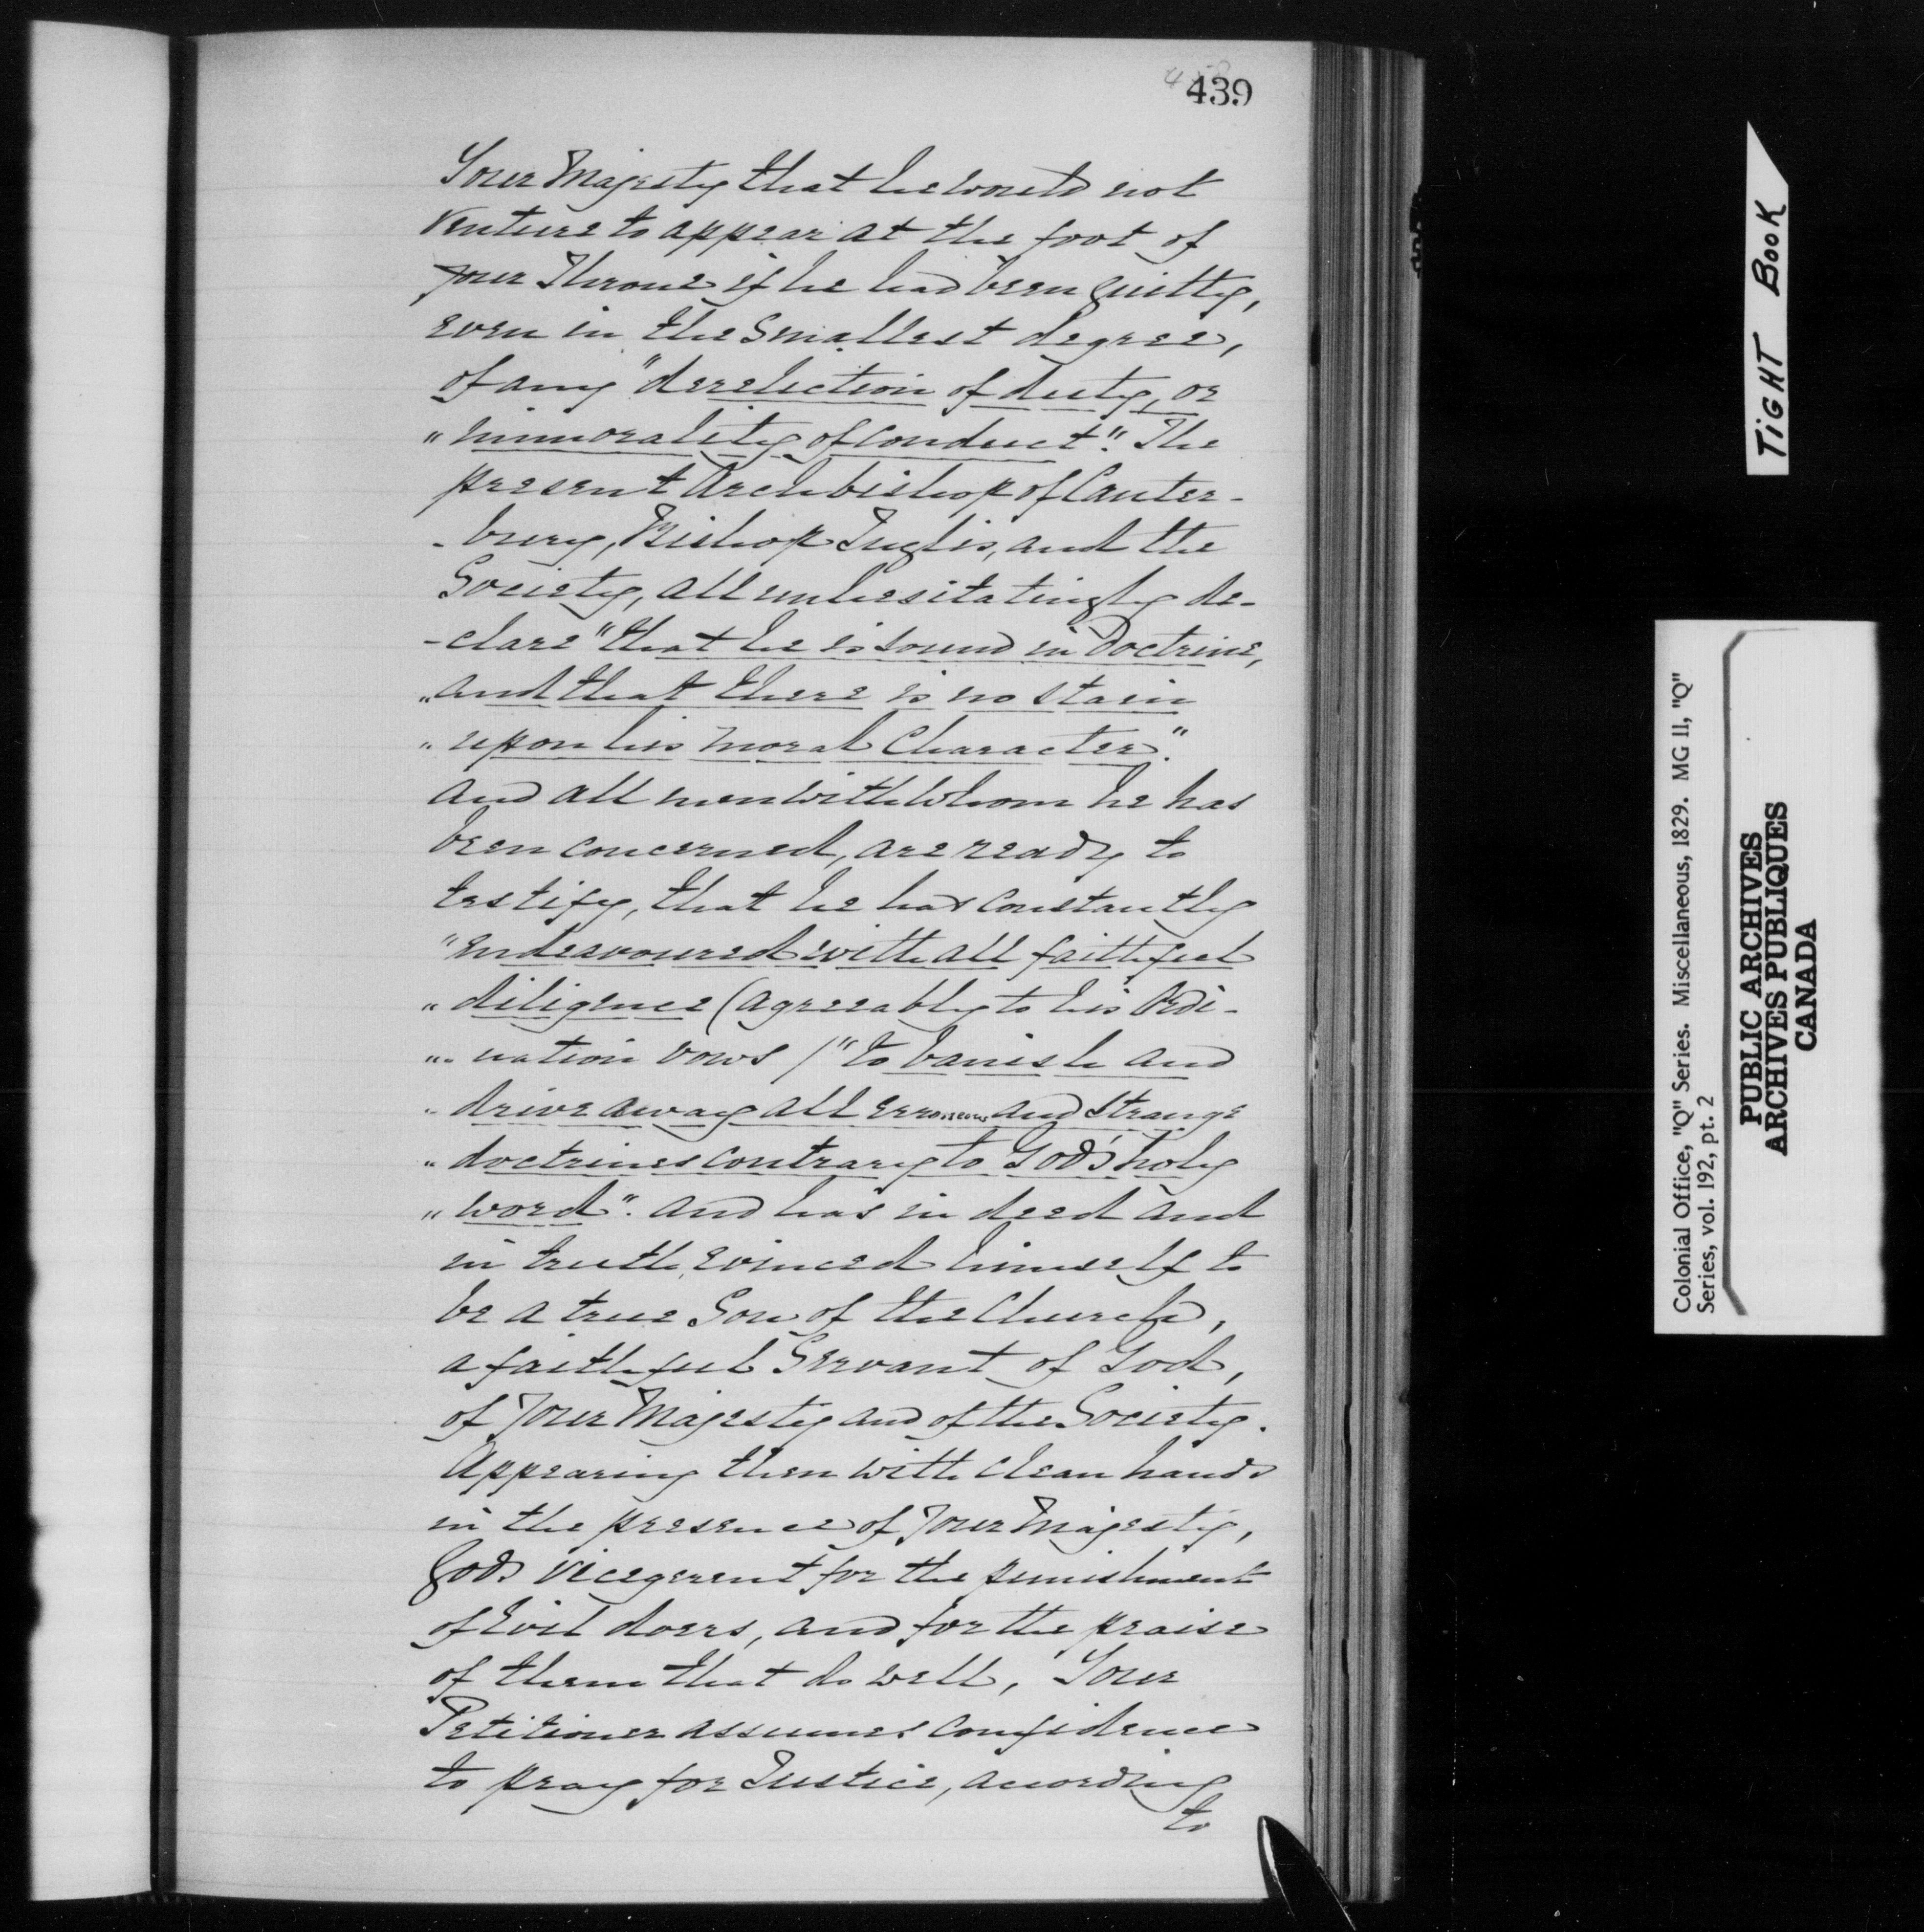 439
Your Majesty that he would not
venture to appear at the foot of
your Throne if he had been guilty,
even in the Smallest degree,
of any "dereliction of duty, or
"immorality of conduct". The
present Archbishop of Canter-
-bury, Bishop Inglis, and the
Society, all unhesitatingly de-
-clare "that he is sound in Doctrine,
"and that there is no stain
"upon his moral Character".
And all men with whom he has
been concerned, are ready to
testify, that he has constantly
"endeavoured with all faithful
"diligence (agreeably to his Ordi-
"-nation vows) "to banish and
"drive away all erroneous and strange
"doctrines contrary to God's holy
"word". And has in deed and
in truth, evinced himself to
be a true Son of the Church,
a faithful Servant of God,
of Your Majesty and of the Society.
Appearing then with clean hands
in the presence of Your Majesty,
Gods vicegerent for the punishment
of Evil doers, and for the praise
of them that do well, Your
Petitioner assumes confidence
to pray for Justice, according
to
TIGHT BOOK
Colonial Office, "Q" Series. Miscellaneous, 1829. MG 11, "Q"
Series, vol. 192, pt. 2
PUBLIC ARCHIVES
ARCHIVES PUBLIQUES
CANADA